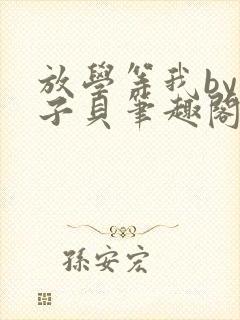 放學等我by
子貝筆趣閣
孫安宏